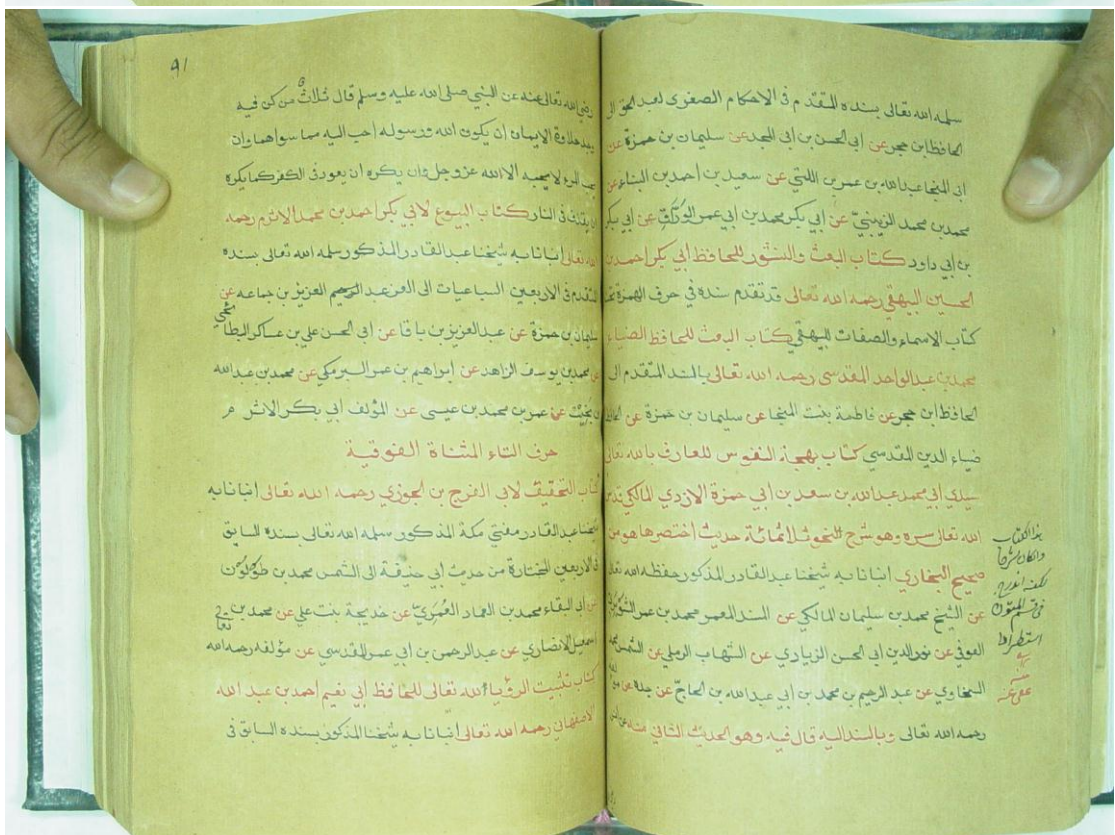 سلمه الله تعالى بسنده المتقدم في الاحكام الصغرى لعبد الحق الى
الحافظ ابن حجر عن ابي الحسن بن ابي المجد عن سليمان بن حمزة عن
ابي المنجا عبد الله بن عمر بن اللتي عن سعيد بن أحمد بن البناء عن
محمد بن محمد الزينبي عن أبي بكر محمد بن ابي عمر الورّاق عن ابي بكر
بن ابي داود كتاب البعث والنشور للحافظ أبي بكر احمد بن
الحسين البيهقي رحمه الله تعالى قد تقدم سنده في حرف الهمزة
كتاب الاسماء والصفات للبيهقي كتاب البعث للحافظ الضياء
محمد بن عبد الواحد المقدسي رحمه الله تعالى بالسند المتقدم الى
الحافظ ابن حجر عن فاطمة بنت المنجا عن سليمان بن حمزة عن الحافظ
ضياء الدين المقدسي كتاب بهجة النفوس للعارف بالله تعالى
سيدي أبي محمد عبد الله بن سعد بن أبي حمزة الازدي المالكي قدس
الله تعالى سره وهو شرح للنحو ثلاثمائة حديث أختصرها هو من
صحيح البخاري انبانا به شيخنا عبد القادر المذكور حفظه الله تعالى
عن الشيخ محمد بن سليمان المالكي عن السند المعمر محمد بن عمر الشوبري
الفوفي عن نور الدين ابي الحسن الزيادي عن الشهاب الرملي عن الشمس محمد
السخاوي عن عبد الرحيم بن محمد بن أبي عبد الله بن الحاجّ عن جده عن
رحمه الله تعالى وبالسند اليه قال فيه وهو الحديث الثاني
هذا الكتاب
وان كان شرحا
لكنه اندرج
في قسم المتون
استطرادا
منه
عفي عنه
٩١
رضي الله تعالى عنه عن النبي صلى الله عليه وسلم قال ثلاث من كن فيه
يجد حلاوة الإيمان أن يكون الله ورسوله أحب اليه مما سواهما وان
يحب المرء لا يحبه الا الله عز وجل وان يكره ان يعود في الكفر كما يكره
ان يقذف في النار كتاب البيوع لابي بكر احمد بن محمد الاثرم رحمه
الله تعالى انبانا به شيخنا عبد القادر المذكور سلمه الله تعالى بسنده
المتقدم في الاربعين السباعيات الى العز عبد الرحيم العزيز بن جماعه عن
سليمان بن حمزة عن عبد العزيز بن باقا عن ابي الحسن علي بن عساكر البطائحي
عن محمد بن يوسف الزاهد عن ابراهيم بن عمر البرمكي عن محمد بن عبد الله
بن بخيت عن عمر بن محمد بن عيسى عن المؤلف أبي بكر الاثرم
حرف التاء المثناة الفوقية
كتاب التحقيق لابي الفرج بن الجوزي رحمه الله تعالى انبانا به
شيخنا عبد القادر مفتي مكة المذكور سلمه الله تعالى بسنده السابق
في الاربعين المختارة من حديث أبي حنيفة الى الشمس محمد بن طولون
عن أبي البقاء محمد بن العماد العُمَري عن خديجة بنت علي عن محمد بن
اسمعيل الانصاري عن عبد الرحمن بن ابي عمر المقدسي عن مؤلفه رحمه الله تعالى
كتاب تثبيت الرؤيا لله تعالى للحافظ أبي نعيم احمد بن عبد الله
الاصفهاني رحمه الله تعالى انبانا به شيخنا المذكور بسنده السابق في